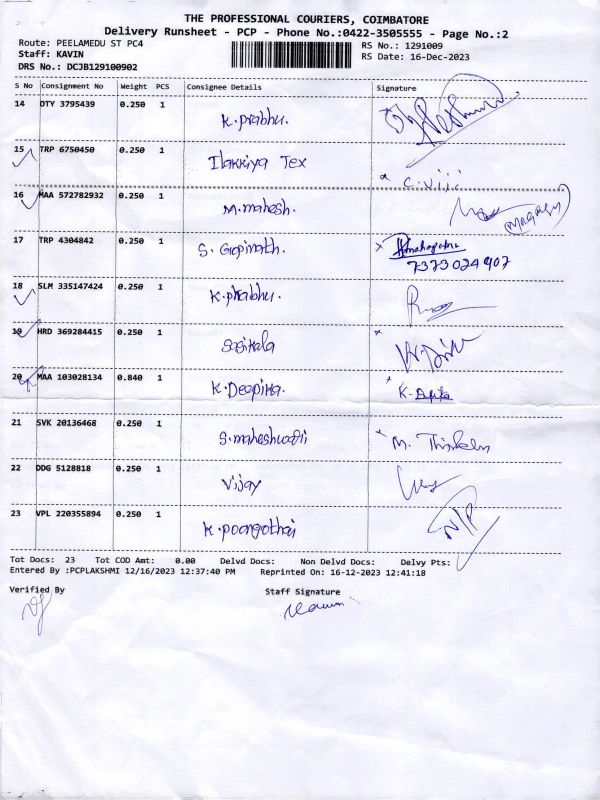 THE PROFESSIONAL COURIERS, COIMBATORE
Delivery Runsheet - PCP - Phone No.:0422-3505555 - Page No.:2
Route: PEELAMEDU ST PC4
RS No.: 1291009
Staff: KAVIN
RS Date: 16-Dec-2023
DRS No.: DCJB129100902
S No Consignment No Weight PCS Consignee Details Signature
14 DTY 3795439 0.250 1 K.prabhu.
15 TRP 6750450 0.250 1 Ilakkiya Tex C.Viji
16 MAA 572782932 0.250 1 M.mahesh.
17 TRP 4304842 0.250 1 S. Gopinath.
7373024907
18 SLM 335147424 0.250 1 K.prabhu.
19 HRD 369284415 0.250 1 Sasikala
20 MAA 103028134 0.840 1 K.Deepika.
21 SVK 20136468 0.250 1 S.maheshwari
22 DDG 5128818 0.250 1 Vijay
23 VPL 220355894 0.250 1 K.poongothai N/P
Tot Docs: 23 Tot COD Amt: 0.00 Delvd Docs: Non Delvd Docs: Delvy Pts:
Entered By :PCPLAKSHMI 12/16/2023 12:37:40 PM Reprinted On: 16-12-2023 12:41:18
Verified By Staff Signature